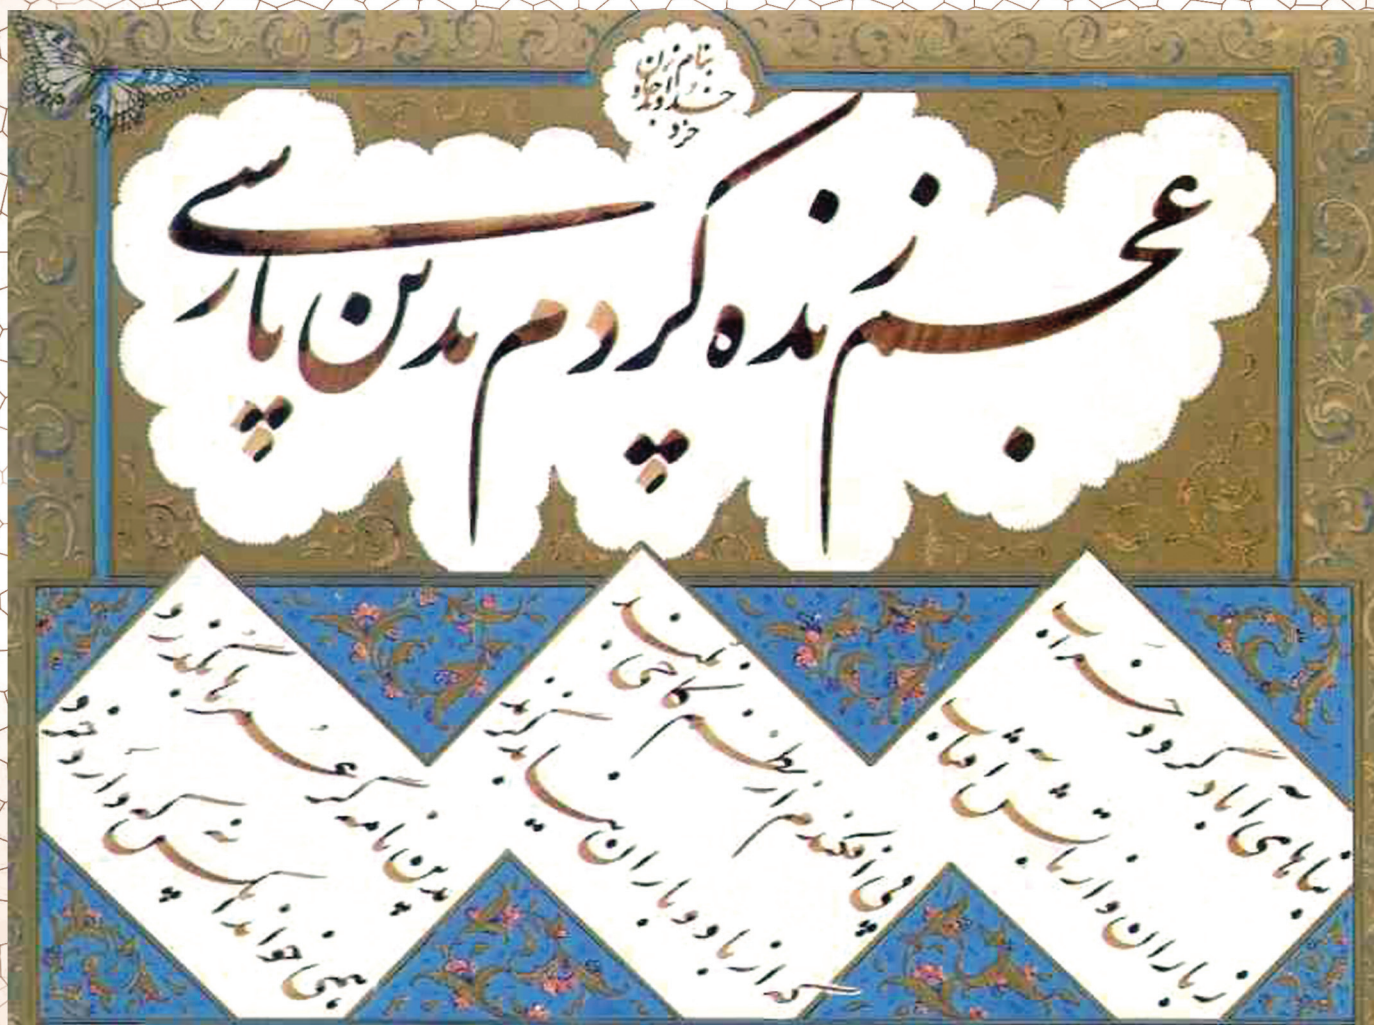 بنام
خداوند جان و
خرد
عجم زنده کردم بدین پارسی
بناهای آباد گردد خراب
ز باران و از تابش آفتاب
پی افکندم از نظم کاخی بلند
که از باد و باران نیابد گزند
بدین نامه گر عمرها بگذرد
همی خواند آنکس که دارد خرد